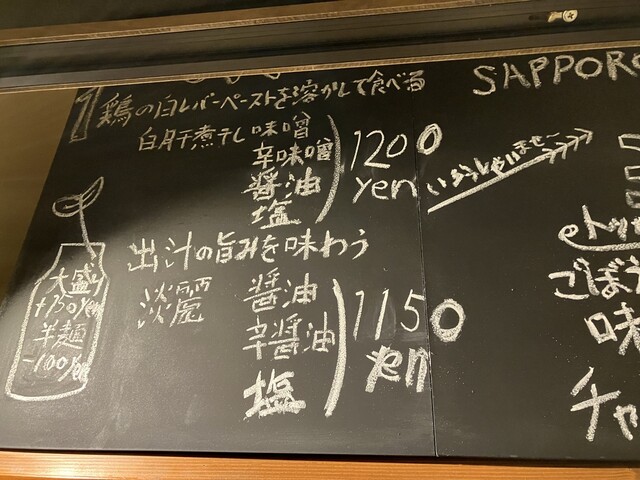 鶏の白レバーペーストを溶かして食べる
白肝煮干し 味噌
辛味噌
醤油
塩
1200
yen
出汁の旨みを味わう
淡麗 醤油
辛醤油
塩
1150
yen
大盛り
+150yen
半麺
-100yen
SAPPORO
いらっしゃいませ〜
トッ
ごぼう
味
チャ